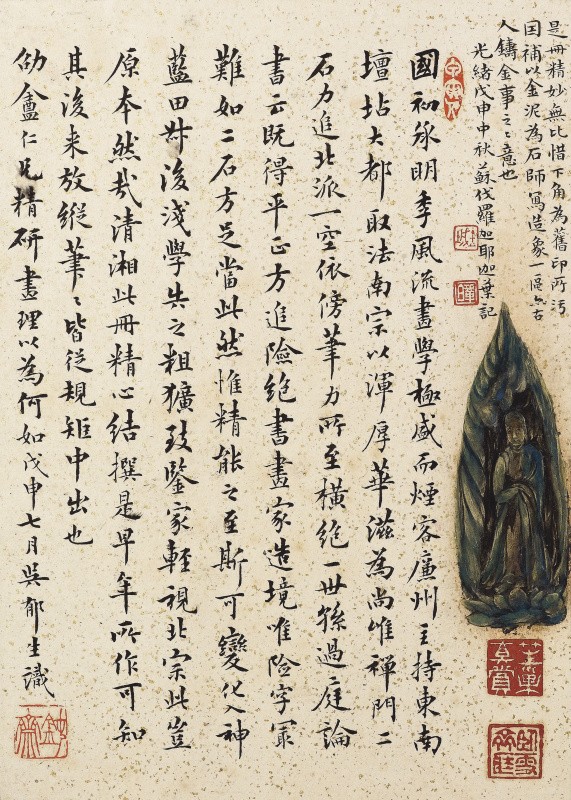 是冊精妙無比惜下角為舊印所污
因補以金泥為石師寫造象一區亦古
人鑄金事之〻意也
光緒戊申中秋蘇伐羅迦耶迦葉記
國初承明季風流畫學極盛而煙客廉州主持東南
壇坫大都取法南宗以渾厚華滋為尚唯禪門二
石力追北派一空依傍筆力所至橫絕一世孫過庭論
書云既得平正方追險絕書畫家造境唯險字冣
難如二石方足當此然惟精能之至斯可變化入神
藍田叔後淺學失之粗獷致鑒家輕視北宗此豈
原本然哉清湘此冊精心結撰是早年所作可知
其後來放縱筆〻皆從規矩中出也
劬盦仁兄精研畫理以為何如戊申七月吳郁生識
鈍齋